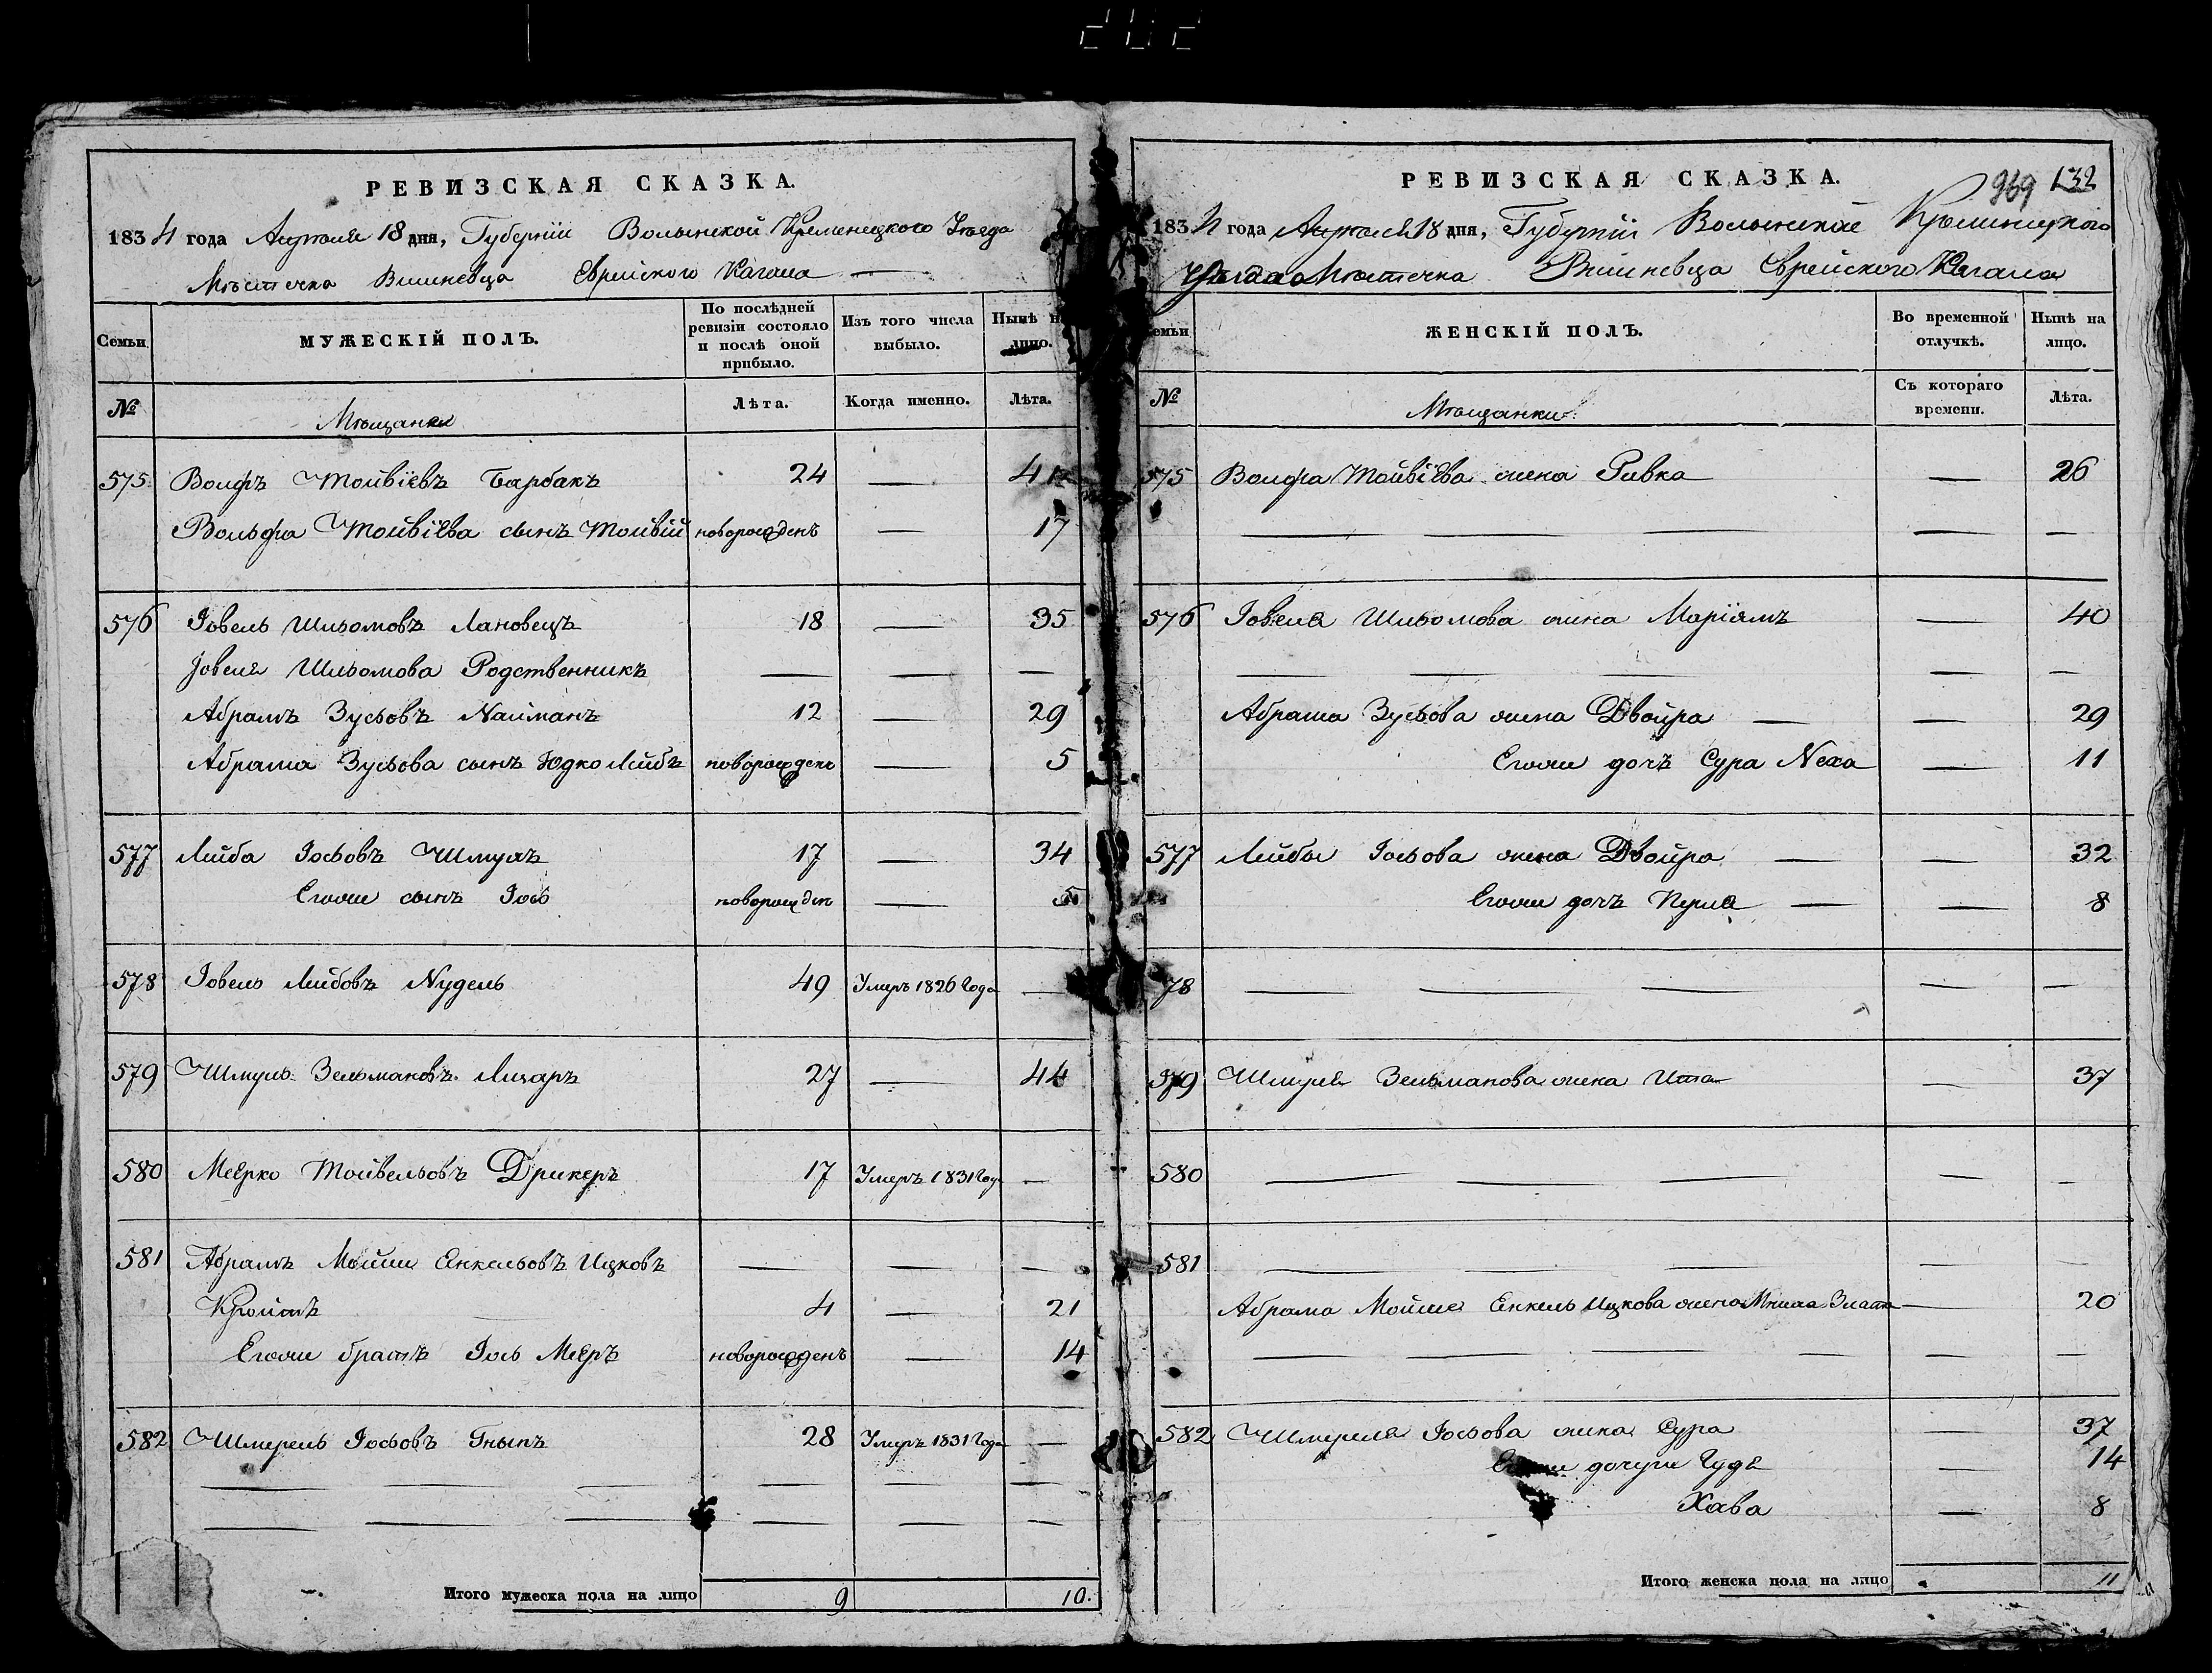 РЕВИЗСКАЯ СКАЗКА.
1834 года Апреля 18 дня, Губерніи Волынской Кременецкого Уѣзда
Мѣстечка Вишневца Еврейского Кагала
Семьи
МУЖЕСКІЙ ПОЛЪ.
По послѣдней ревизіи состояло и послѣ оной прибыло.
Изъ того числа выбыло.
Нынѣ на лицо.
№
Мѣщане
Лѣта.
Когда именно.
Лѣта.
575 Волфъ Тойвіевъ Барбакъ 24 — 41
Вольфа Тойвіева сынъ Тойвій новорожденъ — 17
576 Іовель Шльомовъ Лановецъ 18 — 35
Іовеля Шльомова Родственникъ — — —
Абрамъ Зусьовъ Найманъ 12 — 29
Абрама Зусьова сынъ Юдко Лейбъ новорожденъ — 5
577 Лейба Іосьовъ Шмукъ 17 — 34
Егоже сынъ Іось новорожден — 5
578 Іовель Лейбовъ Нудель 49 Умеръ 1826 Года —
579 Шмуль Зельмановъ Лизаръ 27 — 44
580 Меерко Тойвельовъ Дрикеръ 17 Умеръ 1831 Год —
581 Абрамъ Мойше Енкельовъ Ицковъ — — —
Кройтъ 4 — 21
Егоже братъ Іось Мееръ новорожденъ — 14
582 Шмерель Іосьовъ Гныпъ 28 Умеръ 1831 Года —
Итого мужеска пола на лицо 9 10.
РЕВИЗСКАЯ СКАЗКА.
969 132
1834 года Апреля 18 дня, Губерніи Волынской Кременецкого
Уѣзда Мѣстечка Вишневца Еврейского Кагала
Семьи
ЖЕНСКІЙ ПОЛЪ.
Во временной отлучкѣ.
Нынѣ на лицо.
№
Мѣщанки
Съ котораго времени.
Лѣта.
575 Волфа Тойвіева жена Ривка — 26
576 Іовеля Шльомова жена Маріямъ — 40
Абрама Зусьова жена Двойра — — 29
Егоже дочь Сура Неха — 11
577 Лейбы Іосьова жена Двойра — — 32
Егоже дочь Перля — — 8
578
579 Шмуля Зельманова жена Ита — 37
580
581
Абрама Мойше Енкель Ицкова жена Злата — 20
582 Шмереля Іосьова жена Сура — 37
Егоже дочери Гудя — 14
Хава — 8
Итого женска пола на лицо 11